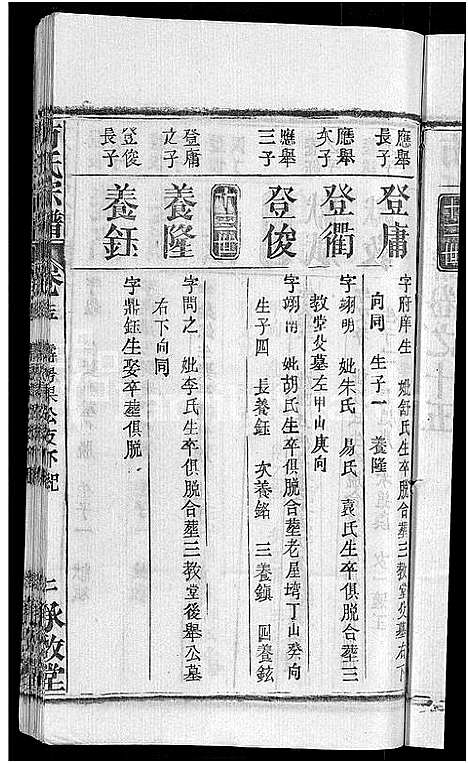 應舉長子
登庸
字府庠生 妣舒氏生卒俱脱合塟三教堂父墓右下
向同 生子一 養隆
應舉次子
登衢
字翊明 妣朱氏 易氏 袁氏生卒俱脱合塟三
教堂父墓左甲山庚向
應舉三子
登俊
字翊 妣胡氏生卒俱脱合塟老屋塆丁山癸向
生子四 長養鈺 次養銘 三養鎮 四養鉉
登庸之子
養隆
字問之 妣李氏生卒俱脱合塟三教堂後舉公墓
右下向同
登俊長子
養鈺
字鼎鈺生娶卒塟俱脱
氏宗譜
承敎堂